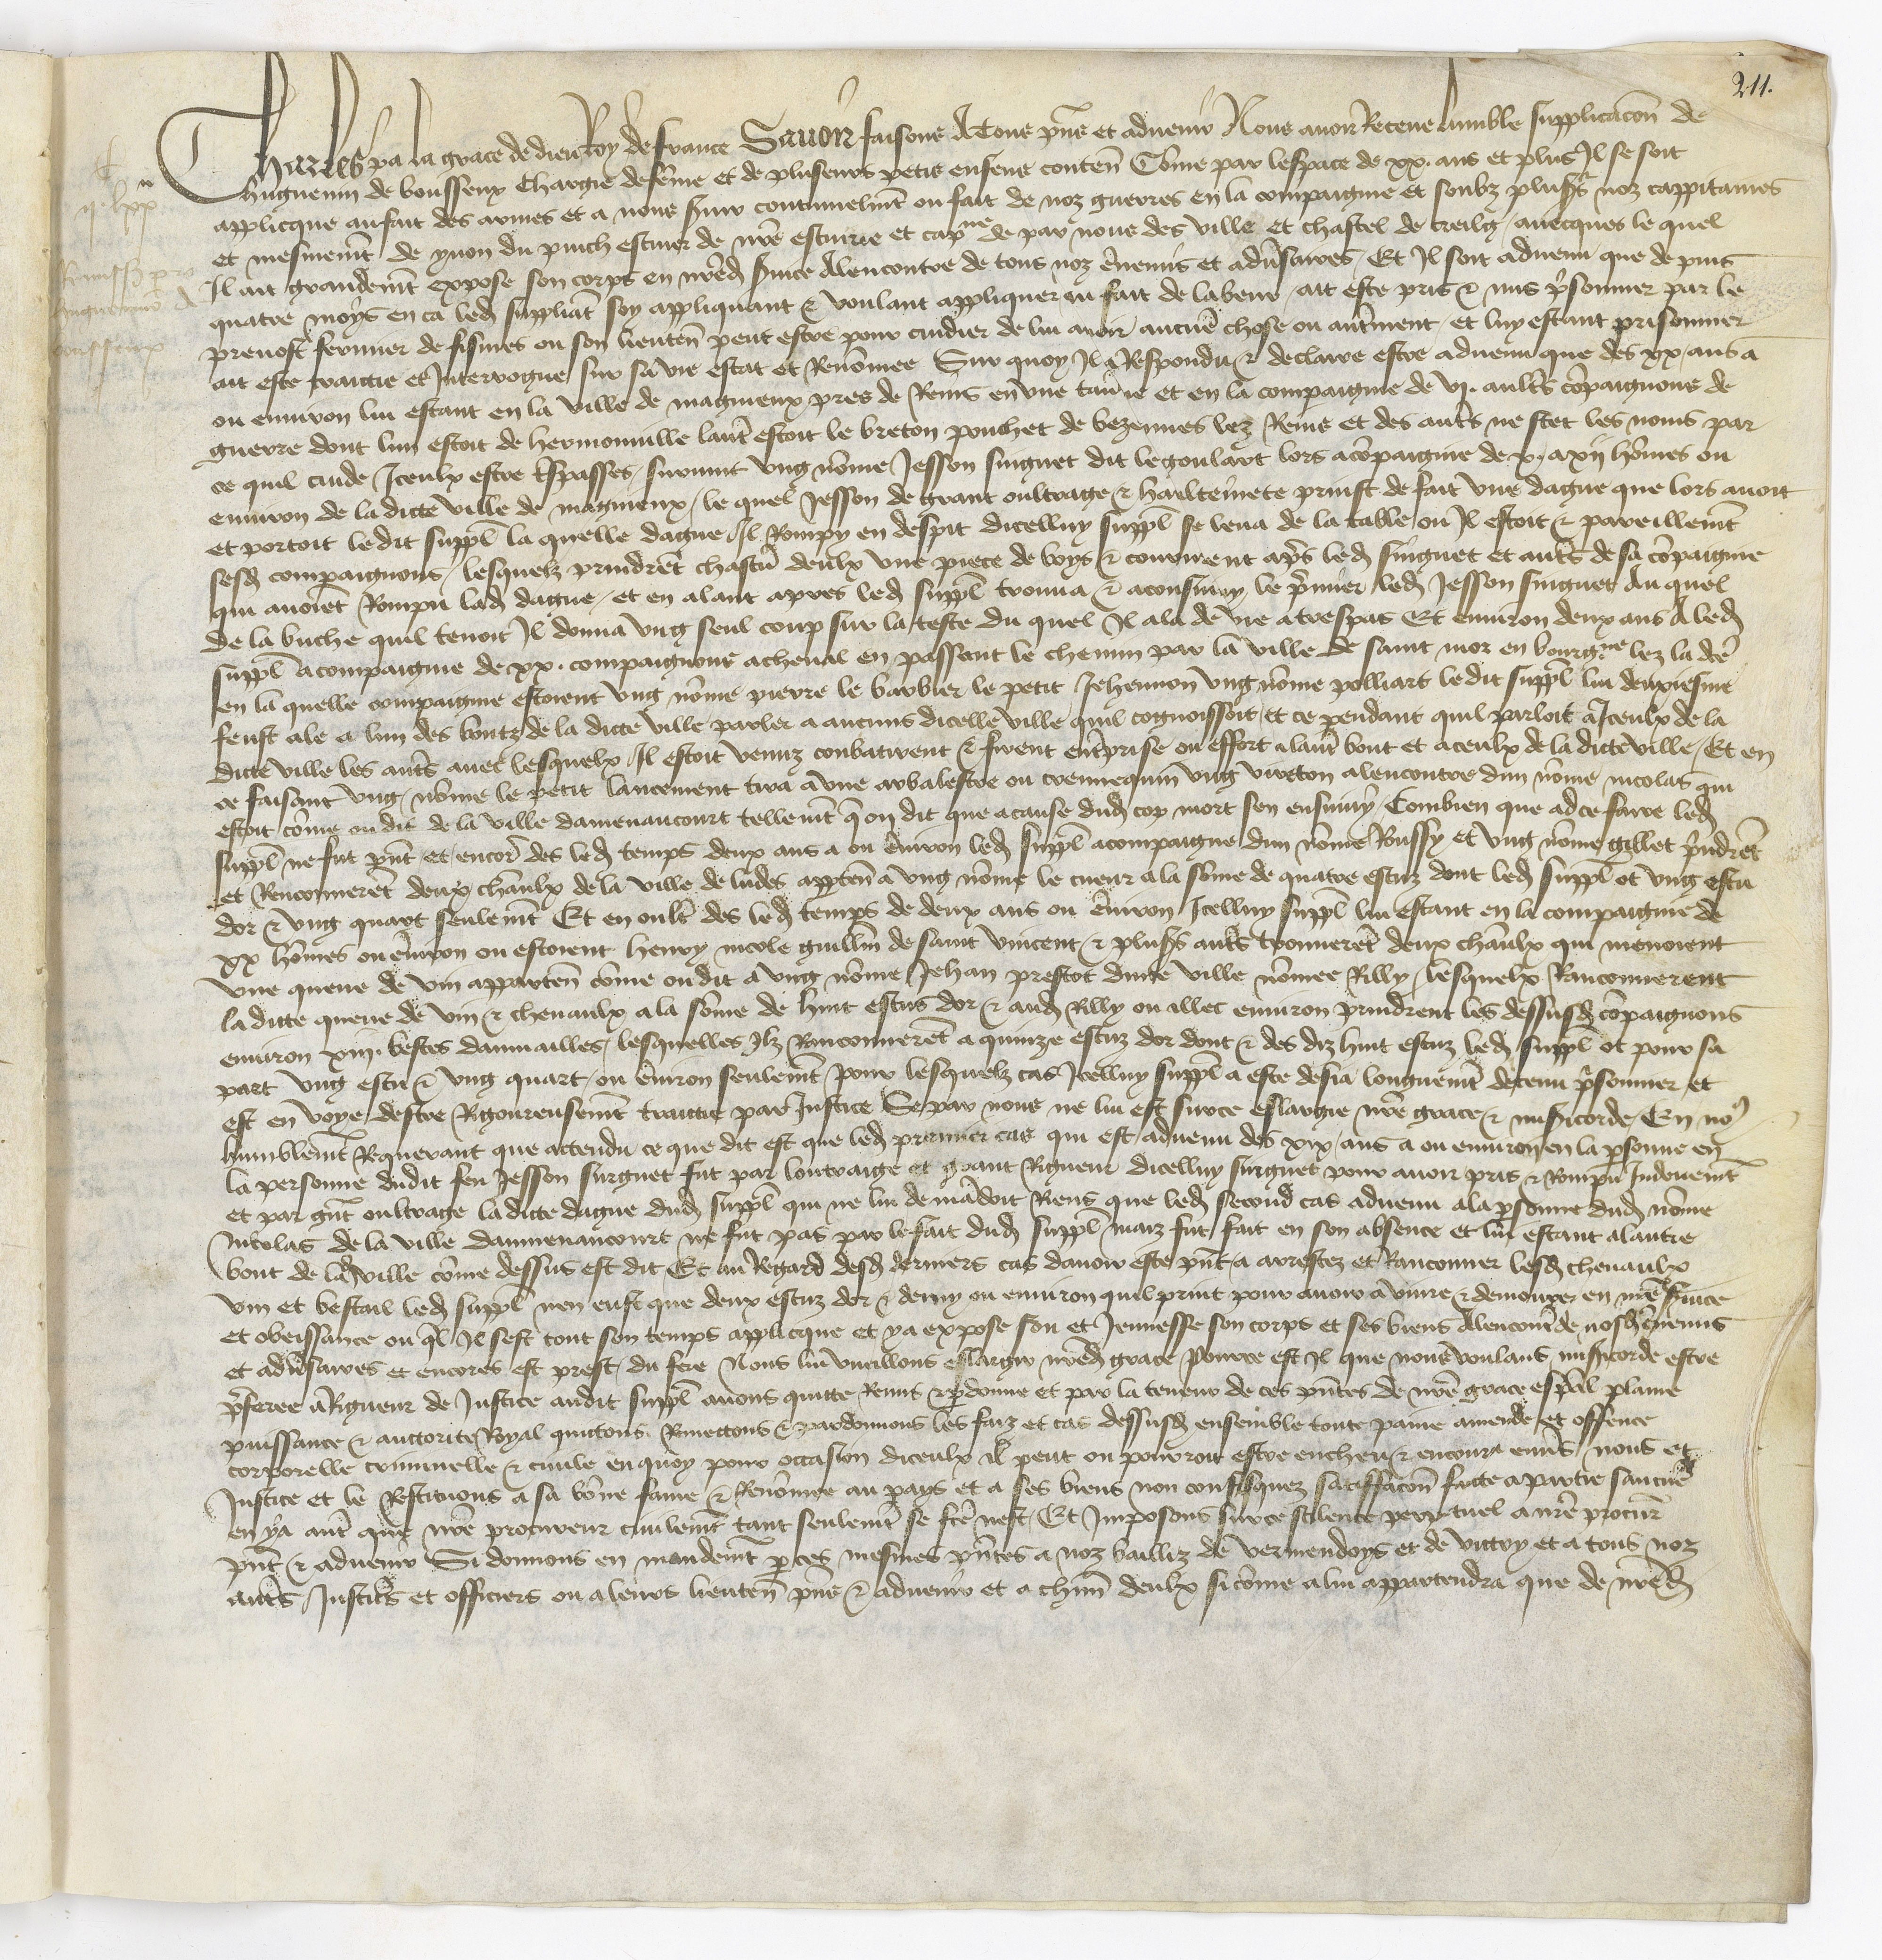 211.
Charles par la grace de dieu Roy de france Savoir faisons A tous pñs et advenir Nous avoir Receue lumble supplicacõn de
huguenin de bousseux chargie de fẽme et de pluseurs petis enfens contenñ Cõme par lespace de xx. ans et plus Il se soit
applicque au fait des armes et a nous suir continuelmẽt ou fait de noz guerres en la compaignie et soubz plusrs noz cappitaines
et mesmemẽt de yvon du puich escuier de nrẽ escuirie et capne de par nous des ville et chastel de creilg avecques le quel
Il ait grandemẽt expose son corps en nrẽd suice Alencontre de tous noz ẽnemis et advsaires / Et Il soit advenu que de puis
quatre moys en ca led suppliãt soy appliquant & voulant appliquer au fait de labeur ait este pris & mis psonnier par le
prevost fermier de fismes ou son lieutenñ peut estre pour cuidier de lui avoir aucuñe chose ou autrement et luy estant prisonnier
ait este traictie et Interrogue sur sa vie estat et Renõmee Sur quoy Il a Respondu & declaire estre advenu que des xx / ans a
ou environ lui estant en la ville de magneux pres de Reins en une tavne et en la compaignie de vj. aultrs cõpaignons de
guerre dont lun estoit de hermonville lautr estoit le breton pouhet de bezennes lez Reins et des autrs ne scet les noms par
ce quil cuide Iceulx estre tspasses / survint ung nõme Jesson singuet dit le goulart lors acõpaignie de x. a xij hõmes ou
environ de la dicte ville de magneux / le quel Jesson de grant oultrage & haultemete prinst de fait une dague que lors avoit
et portoit ledit suppl la quelle dague Il Rompy en despit dicelluy suppl se leva de la table ou Il estoit & pareillemẽt
sesd compaignons / lesquelz prindrẽt chascũ deulx une piece de boys & coururent apres led singuet et autrs de sa cõpaignie
qui avoiẽt Rompu lad dague / et en alant apres led suppl trouva & aconsuivy le pmier led Jesson singuet Au quel
de la buche quil tenoit Il donna ung seul coup sur la teste du quel Il ala de vie a trespas Et environ deux ans A led
suppl acompaignie de xx. compaignons a cheval en passant le chemin par la ville de saint mor en bourgne lez la dcẽ
en la quelle compaignie estoient ung nõme pierre le barbier le petit Jehennon ung nõme polliart ledit suppl lui deuxiesme
feust ale a lun des boutz de la dicte ville parler a aucuns dicelle ville quil cognoissoit / et ce pendant quil parloit a Iceulx de la
dicte ville les autrs avec lesquelx Il estoit venuz conbatirent & firent entprise ou effort a lautr bout et a ceulx de la dicte ville / Et en
ce faisant ung nõme le petit lancement tira a une arbalestre ou crennequin ung vireton alencontre dun nõme nicolas qui
estoit cõme on dit de la ville damenaucourt tellemẽt q̃ on dit que a cause dud cop mort sen ensuivy / Combien que ad ce faire led
suppl ne fut pñt et / encore des led temps deux ans a ou ẽviron led suppl acompaigne dun nõme Roussy et ung nõme gillet pindrẽt
et Renconnerẽt deux chevaulx de la ville de ludes apptenñ a ung nõme le cueur a la sõme de quatre escuz dont led suppl ot ung escu
dor & ung quart seulemẽt Et en oultr des led temps de deux ans ou ẽviron Icelluy suppl lui estant en la compaignie de
xx hõmes ou ẽviron ou estoient henry nicole guillm de saint vincent & plusrs autrs trouverẽt deux chevaulx qui menoient
une queue de vin appartenñ cõme on dit a ung nõme Jehan prestot dune ville nõmee Rilly / lesquelx Ranconnerent
la dicte queue de vin & chevaulx a la sõme de huit escus dor & aud Rilly ou illec environ prindrent les dessusd cõpaignons
environ xiij. bestes daumailles / lesquelles Ilz Ranconnerẽt a quinze escuz dor dont & des diz huit escuz led suppl ot pour sa
part ung escu & ung quart ou ẽviron seulemẽt / pour lesquelz cas Icelluy suppl a este desia longuemẽt detenu psonnier et
est en voye destre Rigoureusemẽt traictie par Justice Se par nous ne lui est surce eslargie nrẽ grace & misicorde / En nous
humblemẽt Requerant que actendu ce que dit est que led premier cas qui est advenu des xix / ans a ou environ en la psonne en
la personne dudit feu Jesson surguet fut par loutraige et grant Rigueur dicelluy surguet pour avoir pris & Rompu Induemẽt
et par gñt oultrage la dicte dague dud suppl qui ne lui demãdoit Riens que led second cas advenu a la psonne dud nõme
Nicolas de la ville dammenaucourt ne fut pas par le fait dud suppl maiz fut fait en son absence et lui estant a lautre
bout de la d ville cõme dessus est dit Et au Regard desd derniers cas davoir este pñt / a arrestez et Ranconner lesd chevaulx
vin et bestail led suppl nen eust que deux escuz dor & demy ou environ quil print pour avoir a vivre & demourer en nrẽ suice
et obeissance ou ql Il sest tout son temps applicque et y a expose son et Jennesse son corps et ses biens Alencontre de nosd ẽnemis
et advsaires et encores est prest du fere Nous lui vueillons eslargir nrẽd grace Pource est Il que nous voulans misicorde estre
pferee a Rigueur de Justice audit suppl avons quitte Remis & pdonne et par la teneur de ces pñtes de nrẽ grace especial plaine
puissance & auctorite Royal quictons Remectons & pardonnons les faiz et cas dessusd ensemble toute paine amende et offence
corporelle criminelle & civile en quoy pour occasion diceulx Il peut ou pourroit estre encheu & encouru envs nous et
Justice et le Restituons a sa bõne fame & Renõmee au pays et a ses biens non confisquez satisffacõn faicte a partie saucũe
en y a autr que nrẽ procureur civilemẽt tant seulemẽt se fcẽ nest / Et Imposons surce scilence perpetuel a nrẽ procurr
pñt & advenir Si donnons en mandemẽt p ces mesmes pñtes a noz bailliz de vermendoys et de victry et a tous noz
autrs Justicrs et officiers ou a leurs lieutenñ pñs & advenir et a chũn deulx si cõme a lui appartendra que de nrẽd